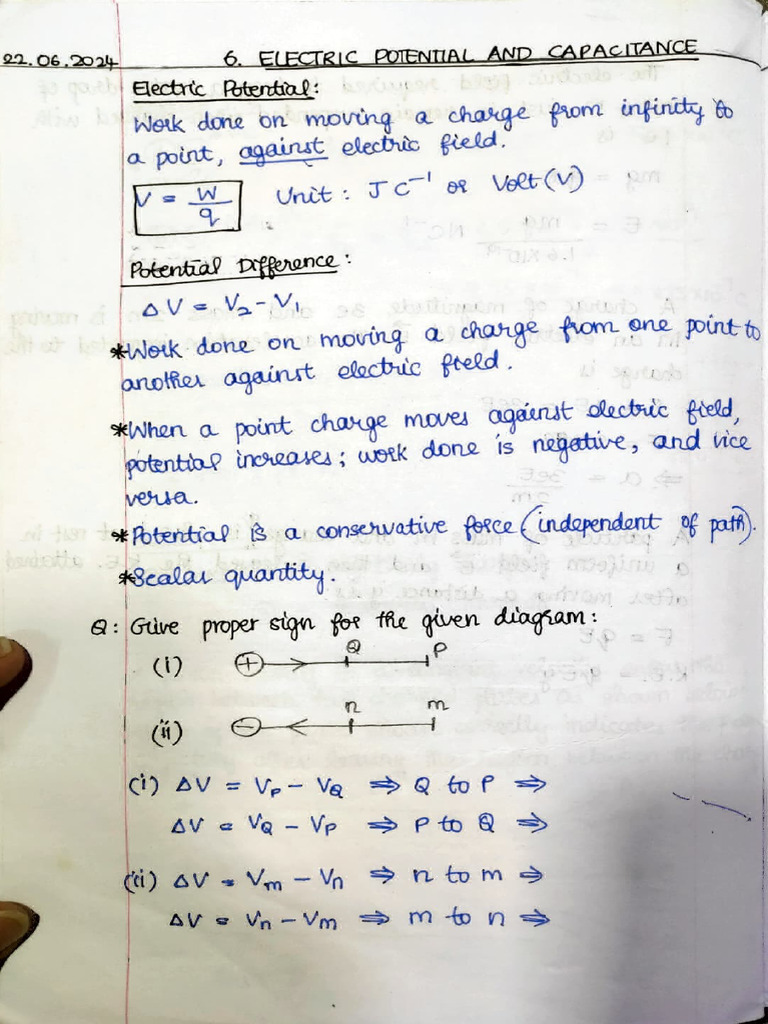 22.06.2024 6. ELECTRIC POTENTIAL AND CAPACITANCE
Electric Potential:
Work done on moving a charge from infinity to
a point, against electric field.
V = W/q Unit: J C⁻¹ or Volt (V)
Potential Difference:
ΔV = V₂ - V₁
*Work done on moving a charge from one point to
another against electric field.
*When a point charge moves against electric field,
potential increases; work done is negative, and vice
versa.
*Potential is a conservative force (independent of path).
*Scalar quantity.
Q: Give proper sign for the given diagram:
(i) + Q P
(ii) - n m
(i) ΔV = V_P - V_Q ⇒ Q to P ⇒
ΔV = V_Q - V_P ⇒ P to Q ⇒
(ii) ΔV = V_m - V_n ⇒ n to m ⇒
ΔV = V_n - V_m ⇒ m to n ⇒